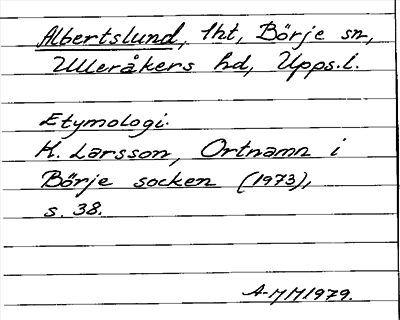 Albertslund, lht, Börje sn,
Ulleråkers hd, Upps.l.
Etymologi.
K. Larsson, Ortnamn i
Börje socken (1973),
s. 38.
A-MM1979.